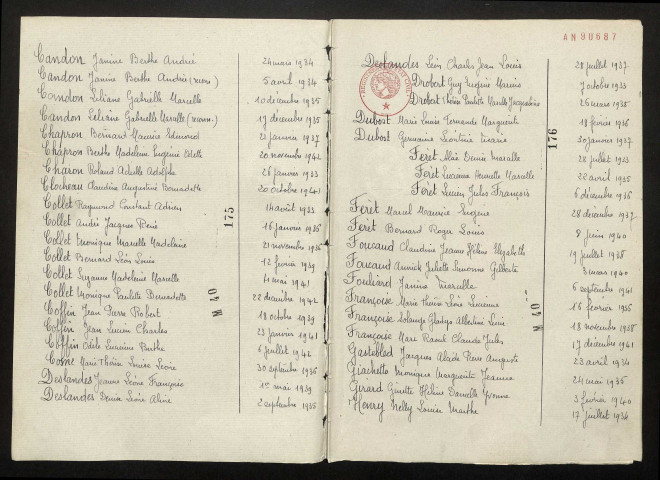 Candon Janine Berthe Andrée 24 mars 1934
Candon Janine Berthe Andrée (recon.) 5 avril 1934
Candon Liliane Gabrielle Marcelle 10 décembre 1935
Candon Liliane Gabrielle Marcelle (reconn.) 17 décembre 1935
Chapron Bernard Maurice Edmond 21 janvier 1937
Chapron Berthe Madeleine Eugénie Odette 20 novembre 1942
Charon Roland Achille Adolphe 26 janvier 1933
Clocheau Claudine Augustine Bernadette 20 octobre 1941
Collet Raymond Constant Adrien 14 août 1933
Collet André Jacques René 16 janvier 1935
Collet Monique Marcelle Madeleine 21 novembre 1936
Collet Bernard Léon Louis 12 février 1939
Collet Suzanne Madeleine Marcelle 4 mai 1941
Collet Monique Paulette Bernadette 22 décembre 1942
Coffin Jean Pierre Robert 18 octobre 1939
Coffin Jean Lucien Charles 23 janvier 1941
Coffin Odile Lucienne Berthe 6 juillet 1942
Cosne Marie Thérèse Louise Léone 30 septembre 1936
Deslandes Jeanne Léone Françoise 15 mai 1939
Deslandes Denise Léone Aline 2 septembre 1935
175
M 40
AN 90687
Deslandes Léon Charles Jean Louis 28 juillet 1937
Drobert Guy Eugène Marius 7 octobre 1933
Drobert Thérèse Paulette Marcelle Jacqueline 26 mars 1935
Dubost Marie Louise Fernande Marguerite 18 février 1936
Dubost Germaine Léontine Marie 30 janvier 1937
Feret Denise Marcelle 28 juillet 1933
Feret Lucienne Marcelle 22 avril 1935
Feret Lucien Jules François 6 décembre 1936
Feret Marcel Maurice Eugène 28 décembre 1937
Feret Bernard Roger Louis 8 juin 1940
Foucaud Claudine Jeanne Hélène Elisabeth 19 juillet 1938
Foucaud Annick Juliette Simonne Gilberte 3 mars 1940
Fouliard Janine Marcelle 6 septembre 1941
Françoise Marie Thérèse Lucienne 16 février 1936
Françoise Solange Gladys Albertine 18 novembre 1938
Françoise Marc Raoul Claude Jules 17 décembre 1941
Gastebled Jacques Pierre Auguste 23 avril 1934
Giachetto Monique Marguerite Jeanne 24 mai 1935
Girard Ginette Hélène Danielle Yvonne 3 février 1940
Henry Nelly Louise Marthe 17 juillet 1934
176
M 40